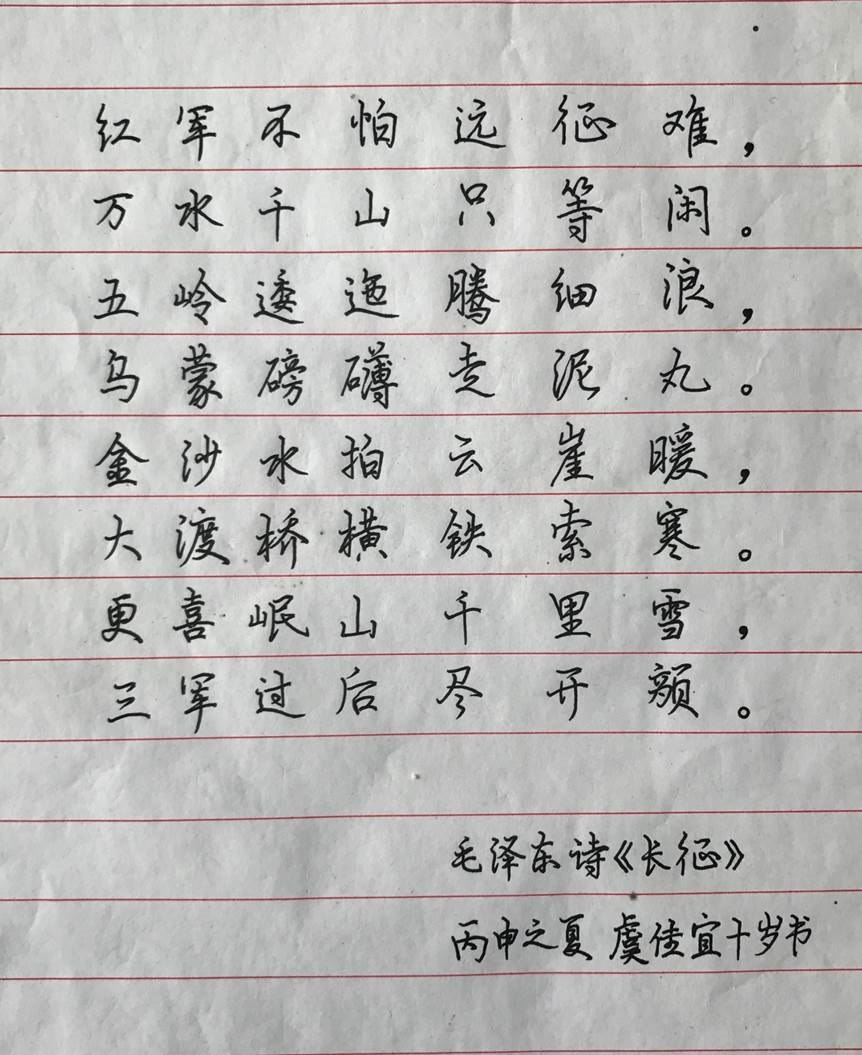 红军不怕远征难，
万水千山只等闲。
五岭逶迤腾细浪，
乌蒙磅礴走泥丸。
金沙水拍云崖暖，
大渡桥横铁索寒。
更喜岷山千里雪，
三军过后尽开颜。
毛泽东诗《长征》
丙申之夏 虞佳宜十岁书